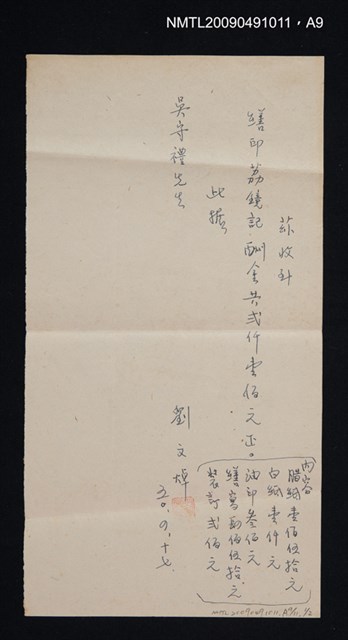 NMTL20090491011，A9
茲收到
繕印荔鏡記酬金共弍仟壹佰元正。
此據
吳守禮先生
劉文焯
五〇.九.十七.
內容
腊紙壹佰伍拾元
白紙壹仟元
油印叁佰元
繕寫肆佰伍拾元
裝訂弍佰元